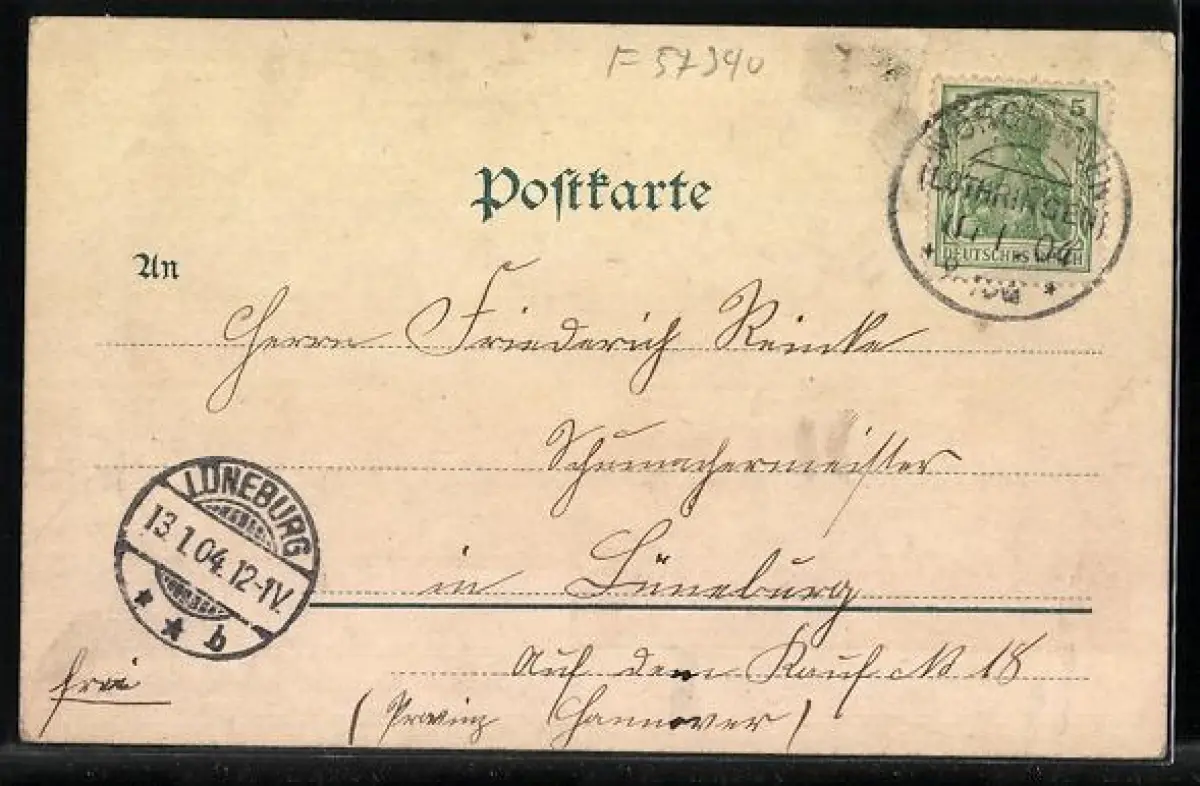 F 57340
Postkarte
5
(LOTHRINGEN)
1. 04
DEUTSCHES REICH
An
Herrn Friederich Reinke
Schumachermeister
in Lüneburg
Auf dem Kauf No 18
(Provinz Hannover)
LÜNEBURG
13.1.04.12-1V.
* * b
frei